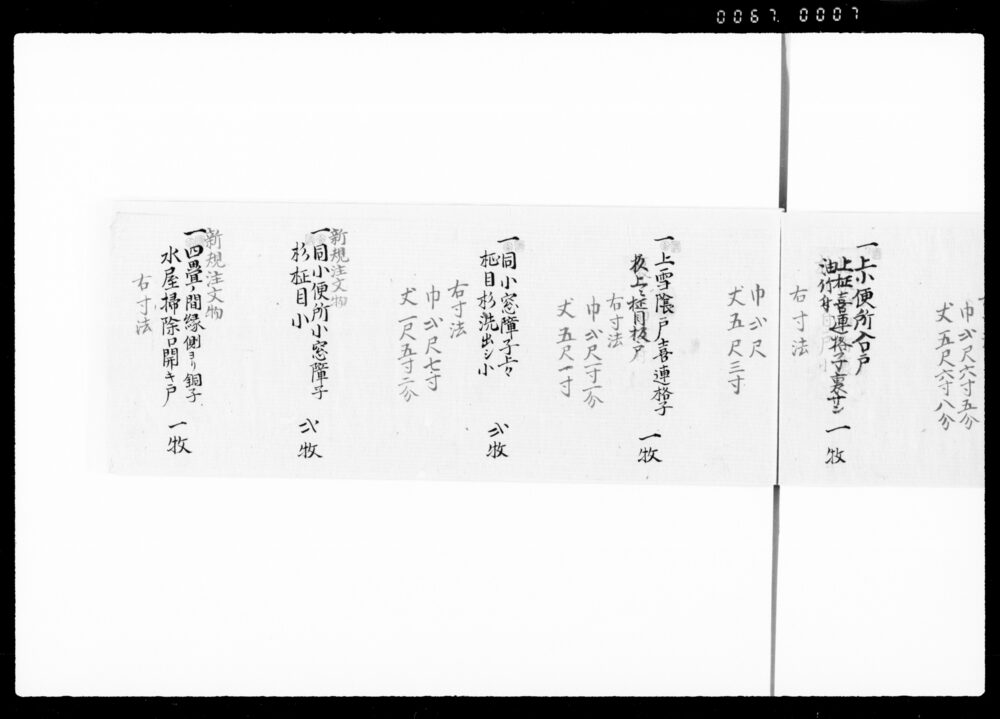 0067. 0007
巾弐尺六寸五分
丈五尺六寸八分
一上小便所入口戸
上柾喜連格子裏サン
一牧
右寸法
巾弐尺
丈五尺三寸
一上雪隠戸喜連格子
板上ミ柾目板戸
一牧
右寸法
巾弐尺寸二分
丈五尺一寸
一同小窓障子上々
柾目杉洗出シ小
弐牧
右寸法
巾弐尺七寸
丈一尺五寸二分
新規注文物
一同小便所小窓障子
杉柾目小
弐牧
新規注文物
一四畳ノ間縁側ヨリ銅子
水屋掃除口開キ戸
一牧
右寸法